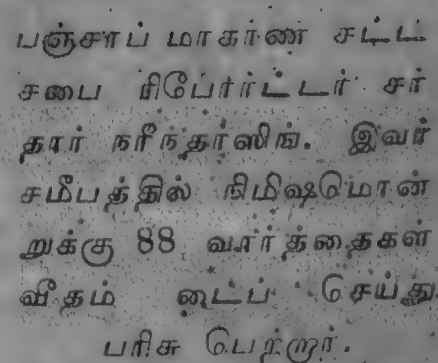 பஞ்சாப் மாகாண சட்ட
சபை ரிபோர்ட்டர் சர்
தார் நரீந்தர்ஸிங். இவர்
சமீபத்தில் நிமிஷமொன்
றுக்கு 88 வார்த்தைகள்
வீதம் டைப் செய்து
பரிசு பெற்றார்.